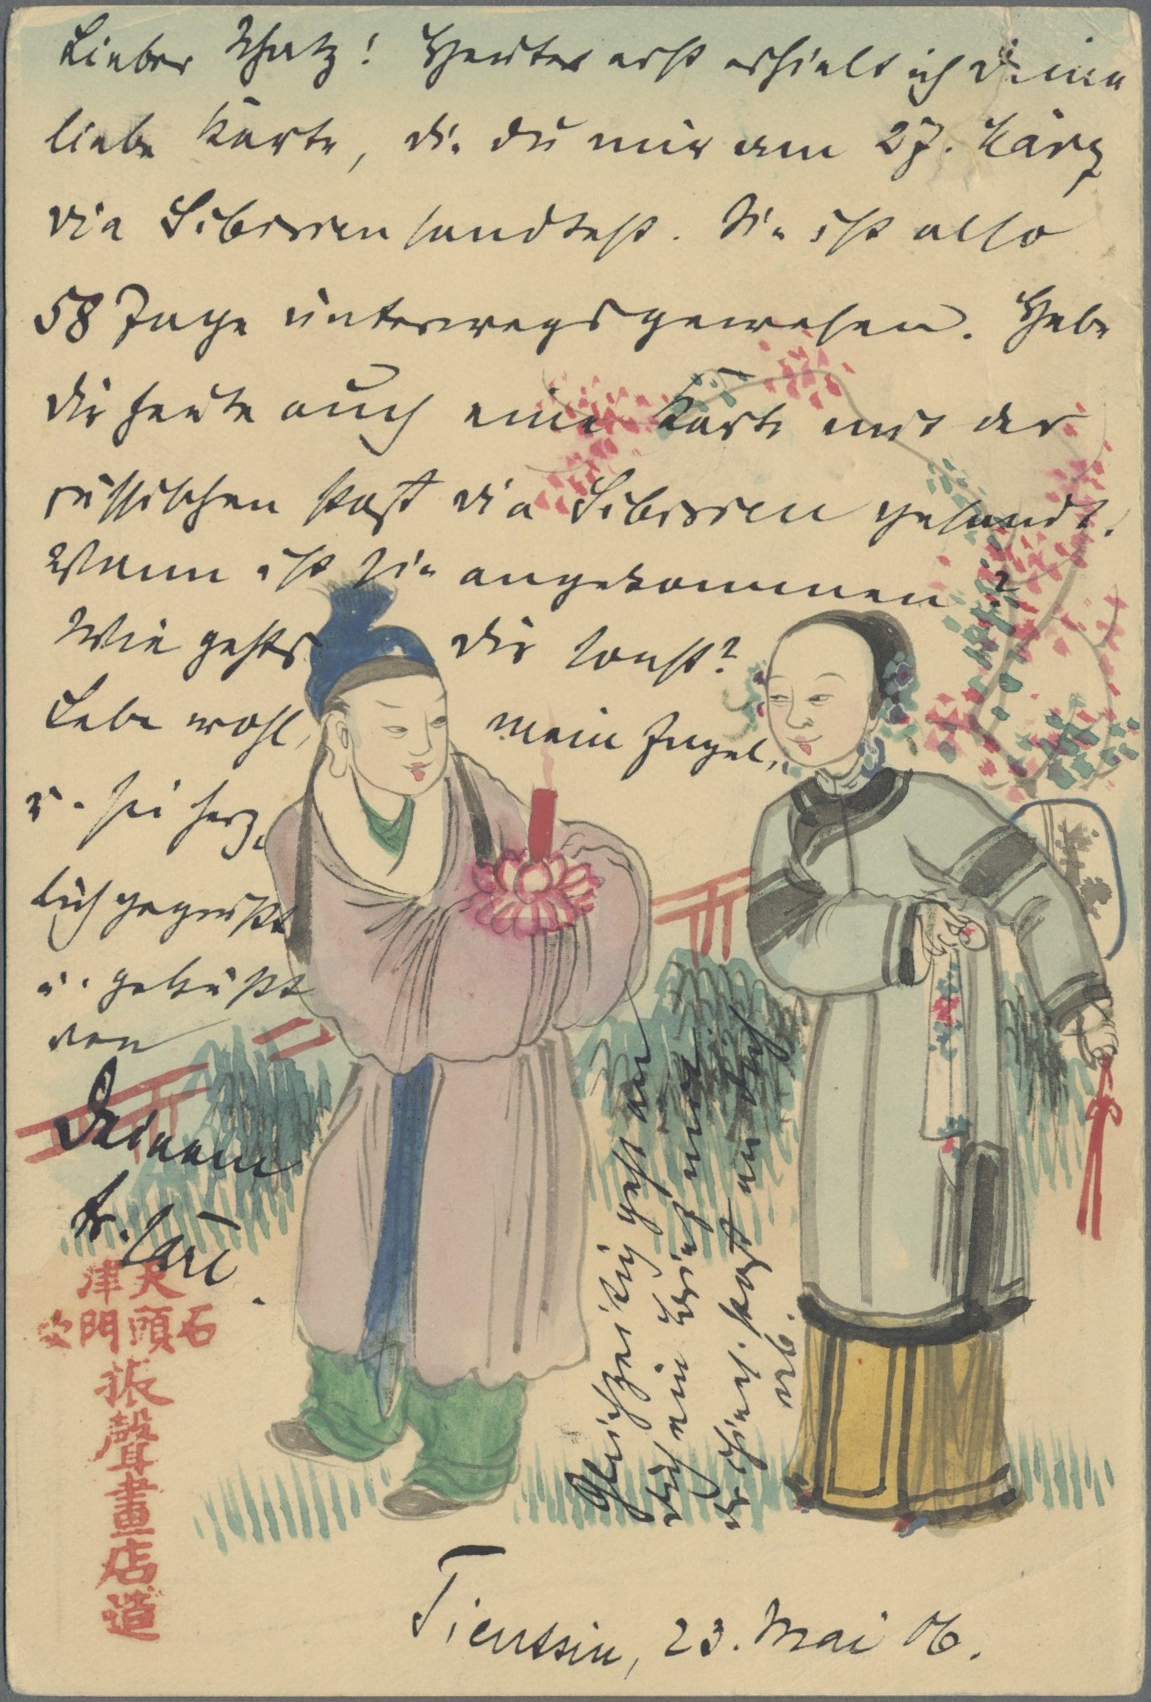 Lieber Schatz! Heute erst erhielt ich Deine
liebe Karte, die du mir am 27. März
via Sibirien sandtest. Sie ist also
58 Tage unterwegs gewesen. Habe
dir heute auch eine Karte mit der
russischen Post via Sibirien gesandt.
Wann ist sie angekommen?
Wie gehts dir sonst?
Lebe wohl, mein Engel,
u. sei herz-
lich gegrüßt
u. geküßt
von
Deinem
tr. Carl.
Gleichzeitig geht an
dich ein Brief mit
der chines. Post an dich
ab.
天津
石頭門坎
振聲畫店造
Tientsin, 23. Mai 06.